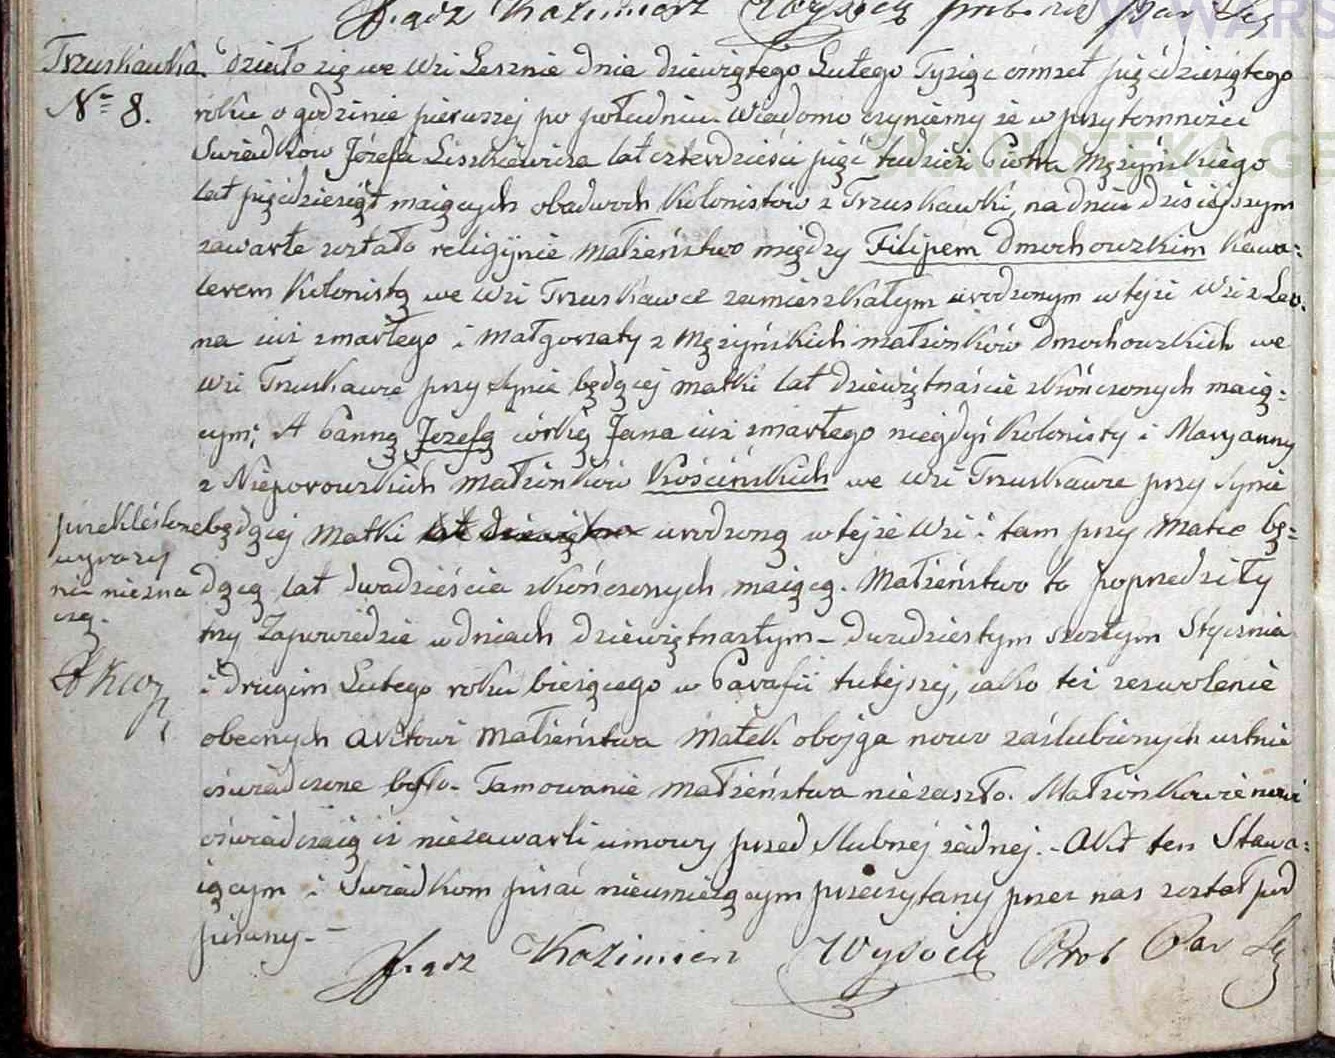 Xiądz Kazimierz Wysocki prob
Truskawka. Działo się we Wsi Lesznie dnia dziewiątego Lutego Tysiąc ośmset pięćdziesiątego
№ 8. roku o godzinie pierwszej po południu. Wiadomo czyniemy że w przytomności
Swiadków Józefa Liszkiewicza lat czterdzieści pięć tudzież Piotra Mężyńskiego
lat pięćdziesiąt maiących obudwoch Kolonistów z Truskawki, na dniu dzisiejszym
zawarte zostało religijnie małżeństwo między Filipem Dmochowzkim Kawa-
lerem Kolonistą we Wsi Truskawce zamieszkałym urodzonym w tejże Wsi z Leo-
na iuż zmarłego i Małgorzaty z Mężyńskich małżonków Dmochowzkich we
Wsi Truskawce przy synie będącej matki lat dziewiętnaście skończonych maią-
cym; A Panną Jozefą córką Jana iuż zmarłego niegdyś Kolonisty i Maryanny
z Nieporowzkich małżonków Kościńskich we Wsi Truskawce przy synie
będącej Matki lat dziewiętna urodzoną w tejże Wsi i tam przy Matce bę-
przekléslone
wyrazy
nic niezna
czą.
dącą lat dwadzieścia skończonych maiącą. Małżeństwo to poprzedziły
try Zapowiedzie w dniach dziewiętnastym - dwudziestym szóstym Stycznia
i drugim Lutego roku bieżącego w Parafii tutejszej, iako też zezwolenie
obecnych Aktowi Małżeństwa Matek obojga nowo zaślubionych ustnie
oświadczone było. Tamowanie małżeństwa niezaszło. Małżonkowie nowi
oświadczaią iż niezawarli umowy przed ślubnej żadnej. - Akt ten Stawa-
iącym i Swiadkom pisać nieumieiącym przeczytany przez nas został pod
pisany. -
Xiądz Kazimierz Wysocki Prob Par